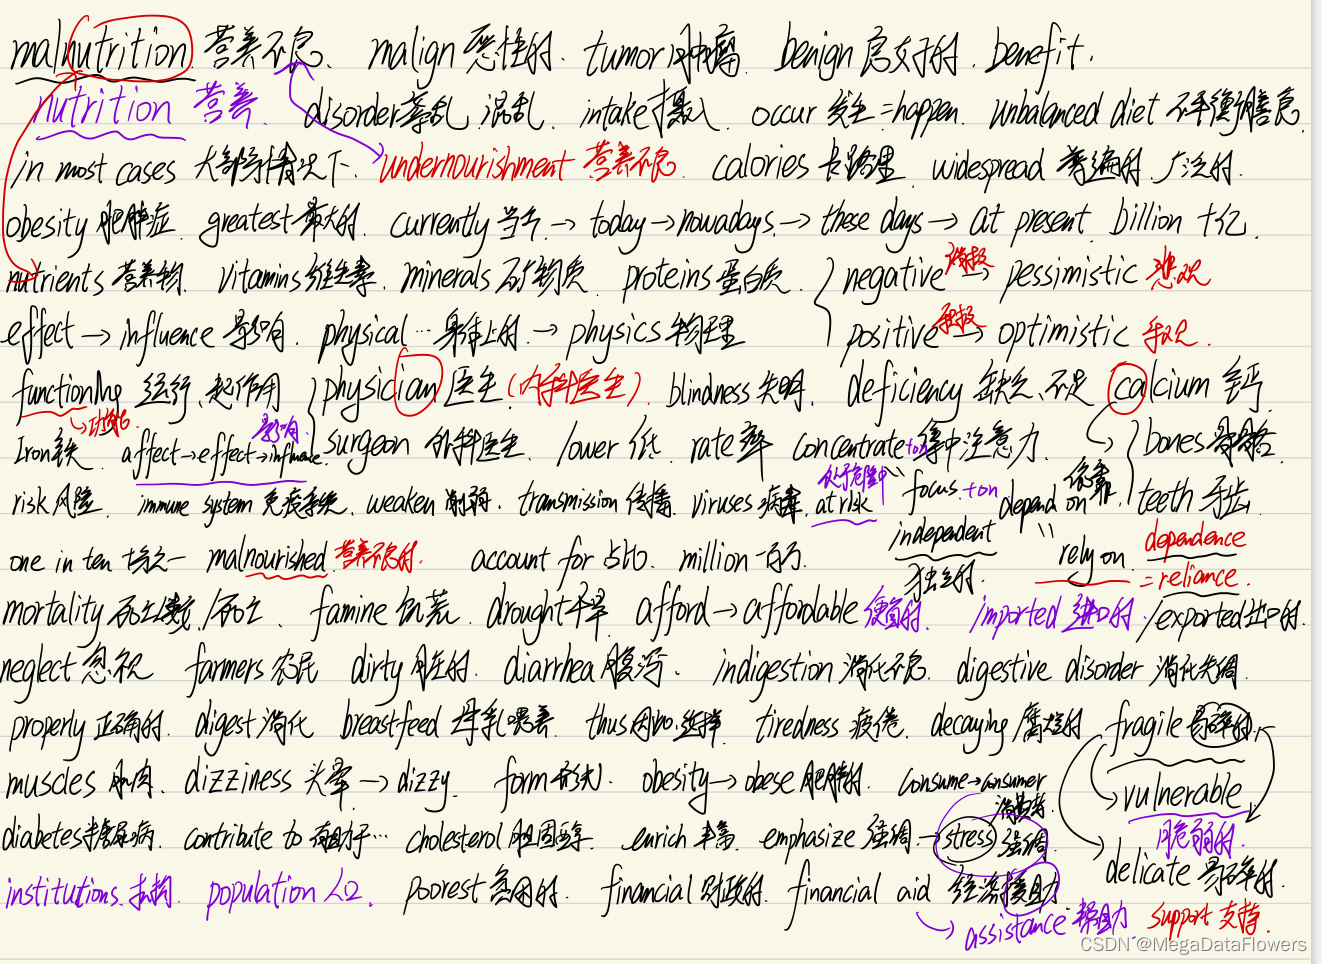 malnutrition 营养不良. malign 恶性的. tumor 肿瘤 benign 良好的. benefit.
nutrition 营养. disorder 紊乱. 混乱. intake 摄入. occur 发生 = happen. unbalanced diet 不平衡膳食.
in most cases 大部分情况下. undernourishment 营养不良. calories 卡路里. widespread 普遍的. 广泛的.
obesity 肥胖症. greatest 最大的. currently 当今. → today → nowadays. → these days → at present. billion 十亿.
nutrients 营养物. vitamins 维生素. minerals 矿物质. proteins 蛋白质. negative 消极 → pessimistic 悲观
effect → influence 影响. physical ... 身体上的. → physics 物理 positive 积极 → optimistic 乐观.
functioning 运行. 起作用 physician 医生 (内科医生). blindness 失明. deficiency 缺乏. 不足 calcium 钙.
→ 功能
Iron 铁. affect → effect → influence. 影响. surgeon 外科医生. lower 低. rate 率 concentrate + on 集中注意力. bones 骨骼.
risk 风险. immune system 免疫系统. weaken 削弱. transmission 传播. viruses 病毒. at risk 处于危险中 focus + on depend on 依靠 teeth 牙齿.
one in ten 十分之一 malnourished. 营养不良的. account for 占比. million 一百万. independent 独立的. rely on. dependence = reliance.
mortality 死亡数. /死亡. famine 饥荒. drought 干旱. afford → affordable 便宜的. imported 进口的. /exported 出口的.
neglect 忽视 farmers 农民 dirty 脏的. diarrhea 腹泻. indigestion 消化不良. digestive disorder 消化失调.
properly 正确的. digest 消化 breastfeed 母乳喂养 thus 因此. tiredness 疲倦. decaying 腐烂的 fragile 易碎的.
muscles 肌肉. dizziness 头晕 → dizzy. form 形式. obesity → obese 肥胖的. consume → consumer 消费者. vulnerable 脆弱的.
diabetes 糖尿病. contribute to 有助于... cholesterol 胆固醇. enrich 丰富. emphasize 强调. → stress 强调. delicate 易碎的.
institutions. 机构. population 人口. poorest 贫困的. financial 财政的. financial aid 经济援助.
→ assistance 帮助 support 支持.
CSDN @MegaDataFlowers